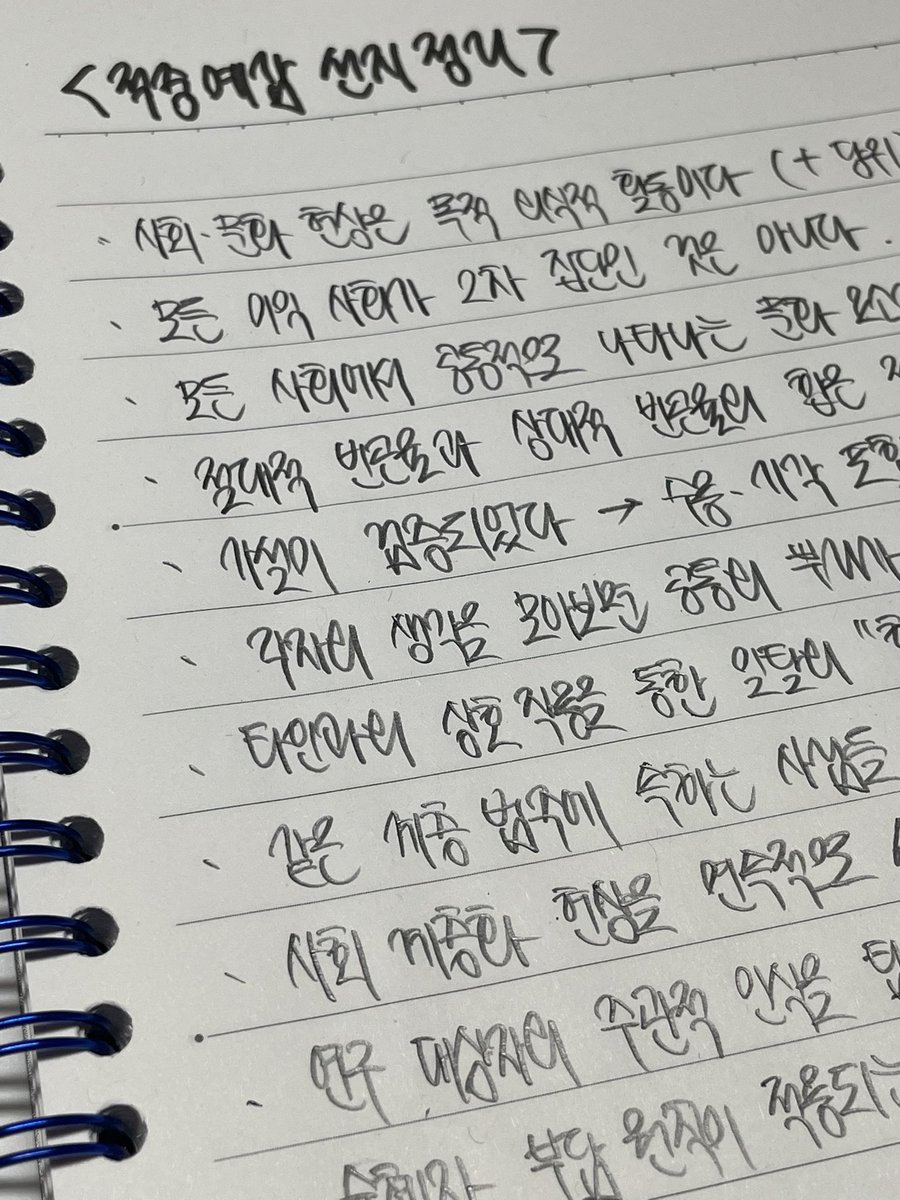 <적중예감 선지 정리>
· 사회·문화 현상은 목적 의식적 활동이다 (+ 당위)
· 모든 이익 사회가 2차 집단인 것은 아니다.
· 모든 사회에서 공통적으로 나타나는 문화 요소
· 절대적 빈곤율과 상대적 빈곤율의 합은
· 가설이 검증되었다 → 수용·기각 포함
· 각자의 생각을 모아보면 공통의 뿌리가
· 타인과의 상호 작용을 통한 일탈의 "
· 같은 계층 범주에 속하는 사람들
· 사회 계층화 현상을 연속적으로
· 연구 대상자의 주관적 인식을
수혜자 부담 원칙이 적용되는